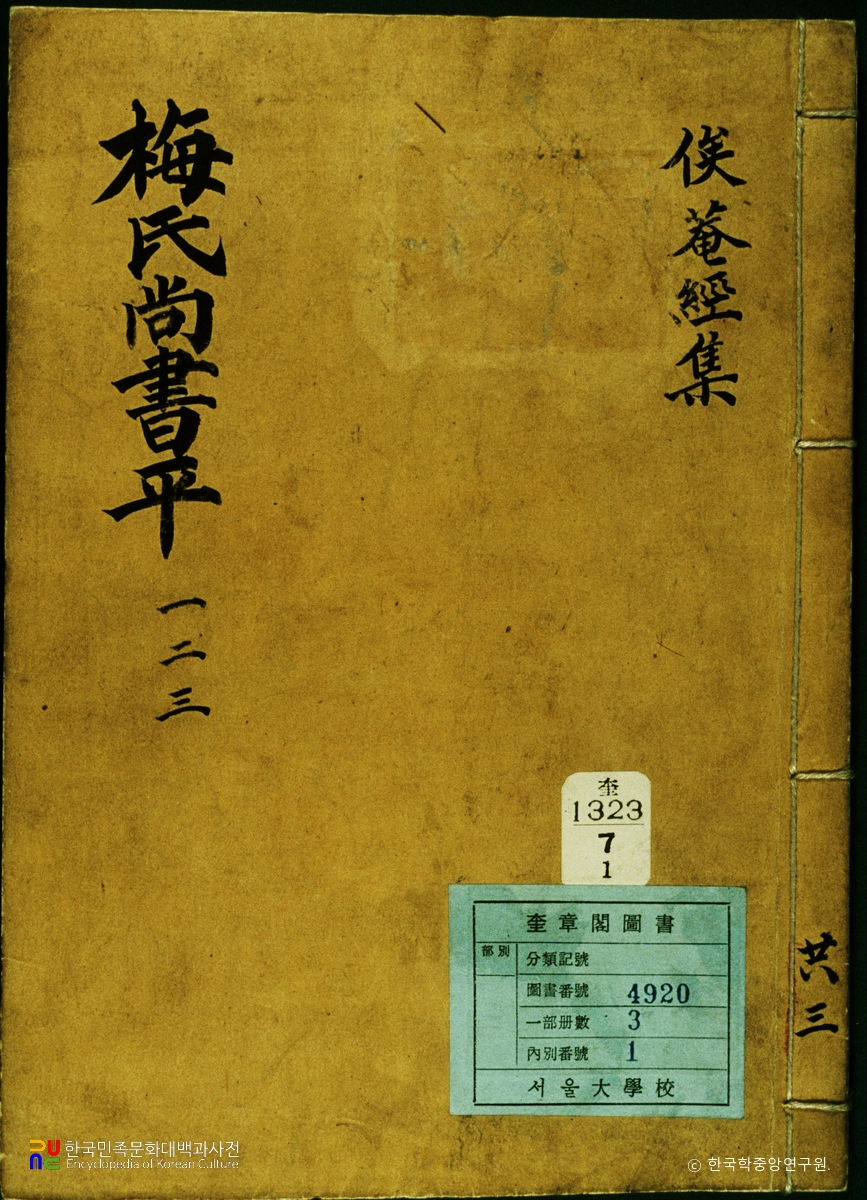 俟菴經集
梅氏尚書平 一 二 三
奎
1323
7
1
奎章閣圖書
部別
分類記號
圖書番號 4920
一部册數 3
內別番號 1
서울大學校
共三
한국민족문화대백과사전
Encyclopedia of Korean Culture
© 한국학중앙연구원.